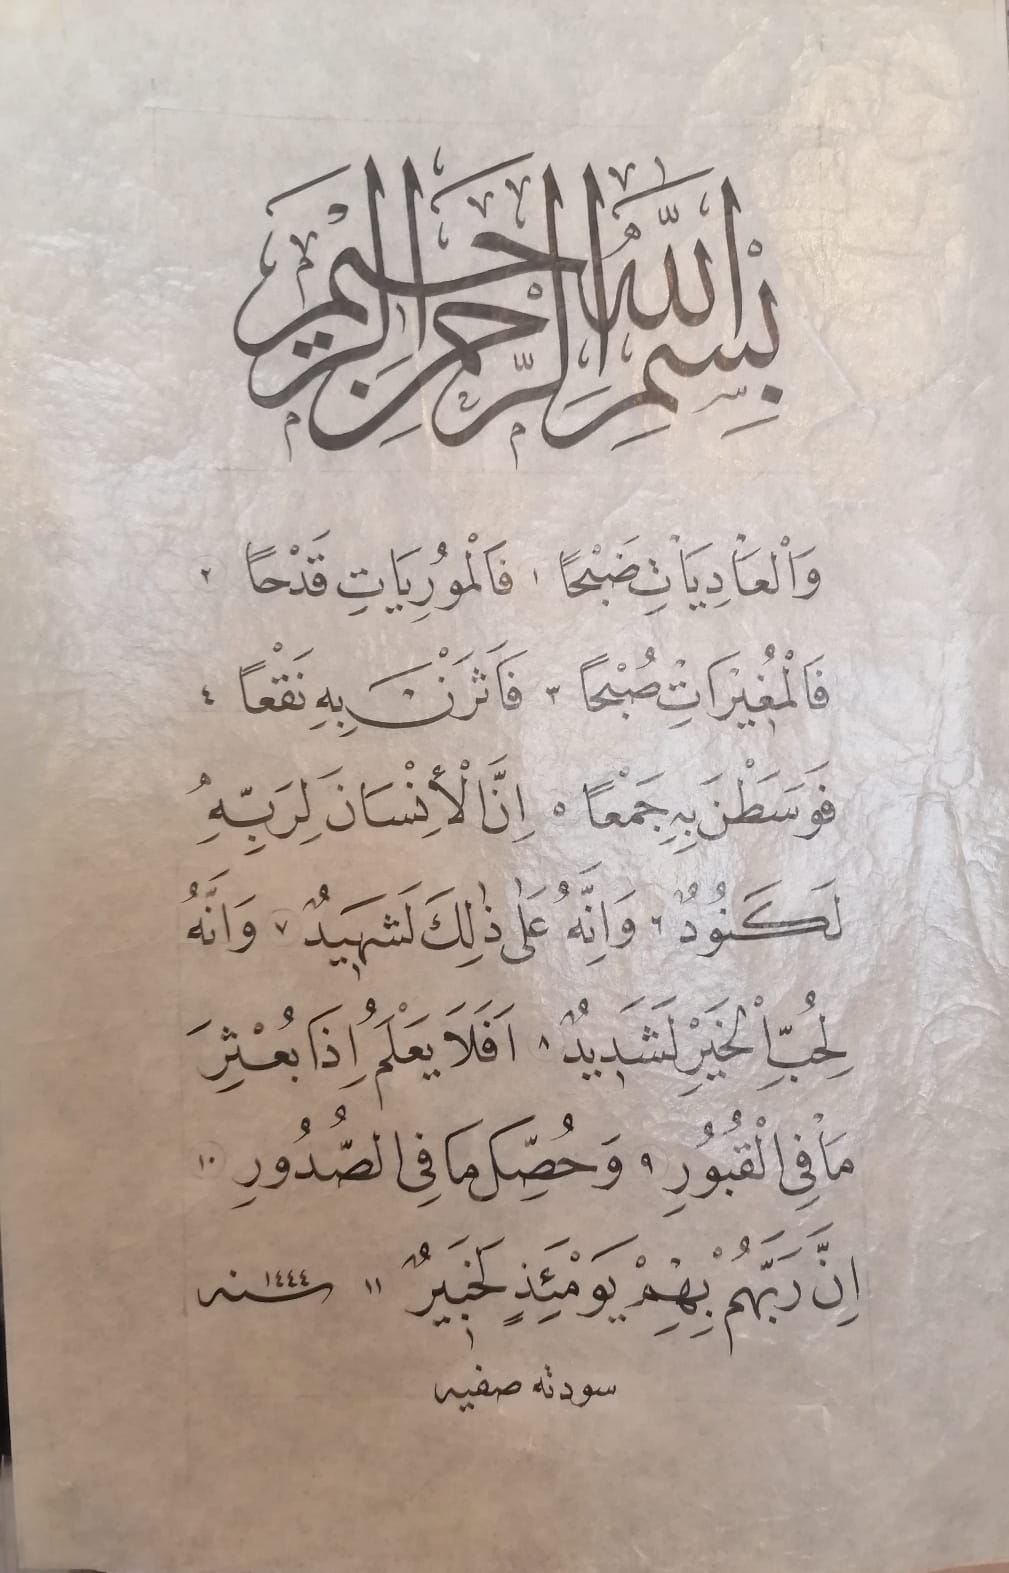 بِسْمِ اللّٰهِ الرَّحْمٰنِ الرَّحِيْمِ
وَالْعَادِيَاتِ ضَبْحًا ١ فَالْمُورِيَاتِ قَدْحًا ٢
فَالْمُغٖيرَاتِ صُبْحًا ٣ فَاَثَرْنَ بِهٖ نَقْعًا ٤
فَوَسَطْنَ بِهٖ جَمْعًا ٥ اِنَّ الْاِنْسَانَ لِرَبِّهٖ
لَكَنُودٌ ٦ وَاِنَّهُ عَلٰى ذٰلِكَ لَشَهٖيدٌ ٧ وَاِنَّهُ
لِحُبِّ الْخَيْرِ لَشَدٖيدٌ ٨ اَفَلَا يَعْلَمُ اِذَا بُعْثِرَ
مَا فِى الْقُبُورِ ٩ وَحُصِّلَ مَا فِى الصُّدُورِ ١٠
اِنَّ رَبَّهُمْ بِهِمْ يَوْمَئِذٍ لَخَبٖيرٌ ١١ سنه ١٤٤٤
سودته صفيه